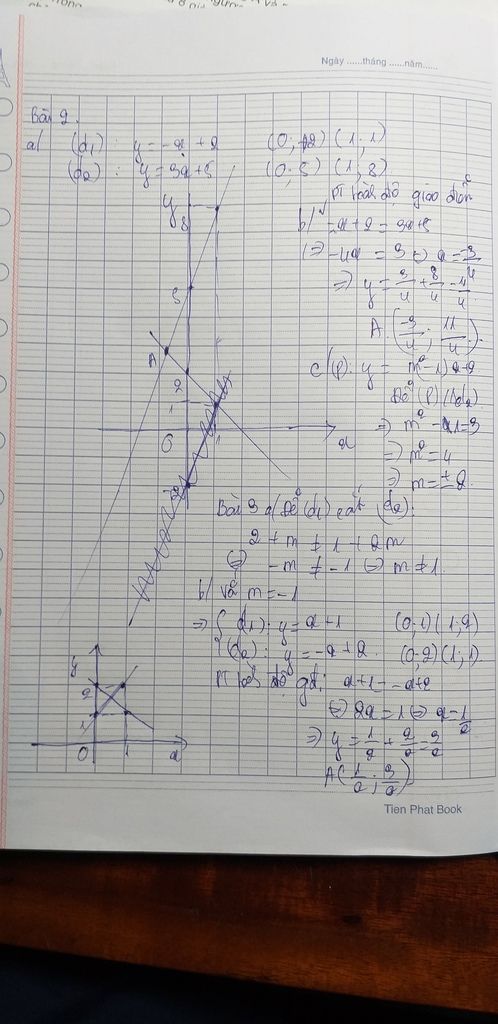 Ngày ......tháng ......năm......
Bài 2.
a/ (d₁) : y = -x + 2 (0; 2) (1; 1)
(d₂) : y = 3x + 5 (0; 5) (1; 8)
y
8
5
A
2
1
O
x
PT hoành độ giao điểm
b/ -x + 2 = 3x + 5
(=) -4x = 3 (=) x = -3/4
=) y = 3/4 + 8/4 = 11/4
A (-3/4 ; 11/4)
c (P): y = (m² - 1) x + 2
Để (P) // (d₂)
=) m² - 1 = 3
=) m² = 4
=) m = ± 2.
Bài 3 a/ Để (d₁) cắt (d₂):
2 + m ≠ 1 + 2m
(=) -m ≠ -1 (=) m ≠ 1.
b/ Với m = -1
=) { (d₁): y = x + 1 (0; 1) (1; 2)
(d₂): y = -x + 2. (0; 2) (1; 1).
PT hoành độ gđ: x + 1 = -x + 2
(=) 2x = 1 (=) x = 1/2
=) y = 1/2 + 2/2 = 3/2
A (1/2 ; 3/2)
y
2
1
O
1
x
Tien Phat Book